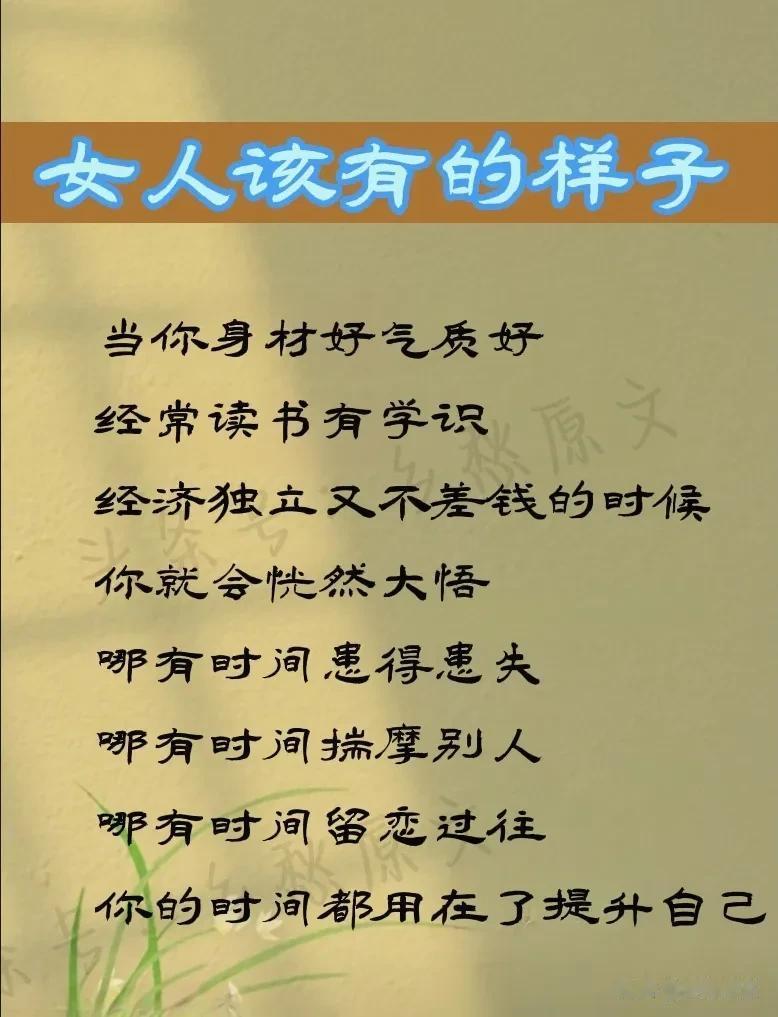 女人该有的样子
当你身材好气质好
经常读书有学识
经济独立又不差钱的时候
你就会恍然大悟
哪有时间患得患失
哪有时间揣摩别人
哪有时间留恋过往
你的时间都用在了提升自己